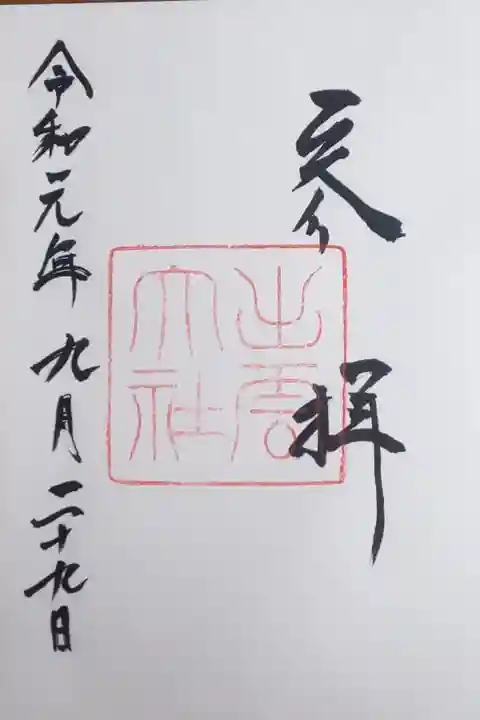 参拝
出雲
大社
令和元年九月二十九日